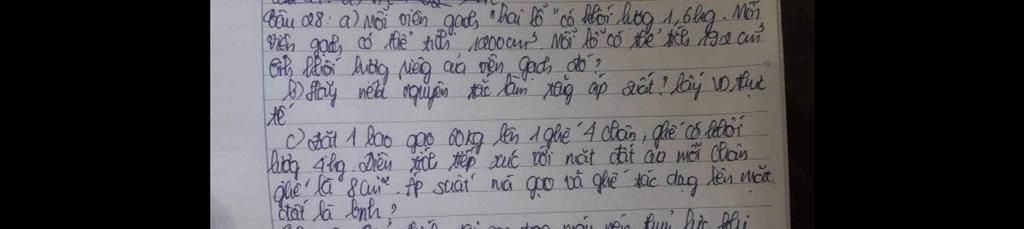 Câu 28: a) Mỗi viên gạch "hai lỗ" có khối lượng 1,6kg. Mỗi
viên gạch có thể tích 1200cm³. Mỗi lỗ có thể tích 192 cm³
tính khối lượng riêng của viên gạch đó?
b) Hãy nêu nguyên tắc làm tăng áp suất? lấy VD thực
tế
c) Đặt 1 bao gạo 60kg lên 1 ghế 4 chân, ghế có khối
lượng 4kg. Diện tích tiếp xúc với mặt đất của mỗi chân
ghế là 8cm². Áp suất mà gạo và ghế tác dụng lên mặt
đất là bnh?